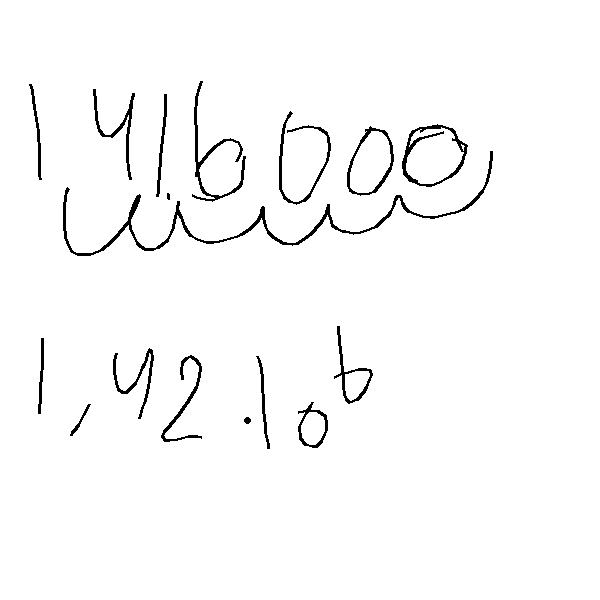 1416000
1,42·10⁶